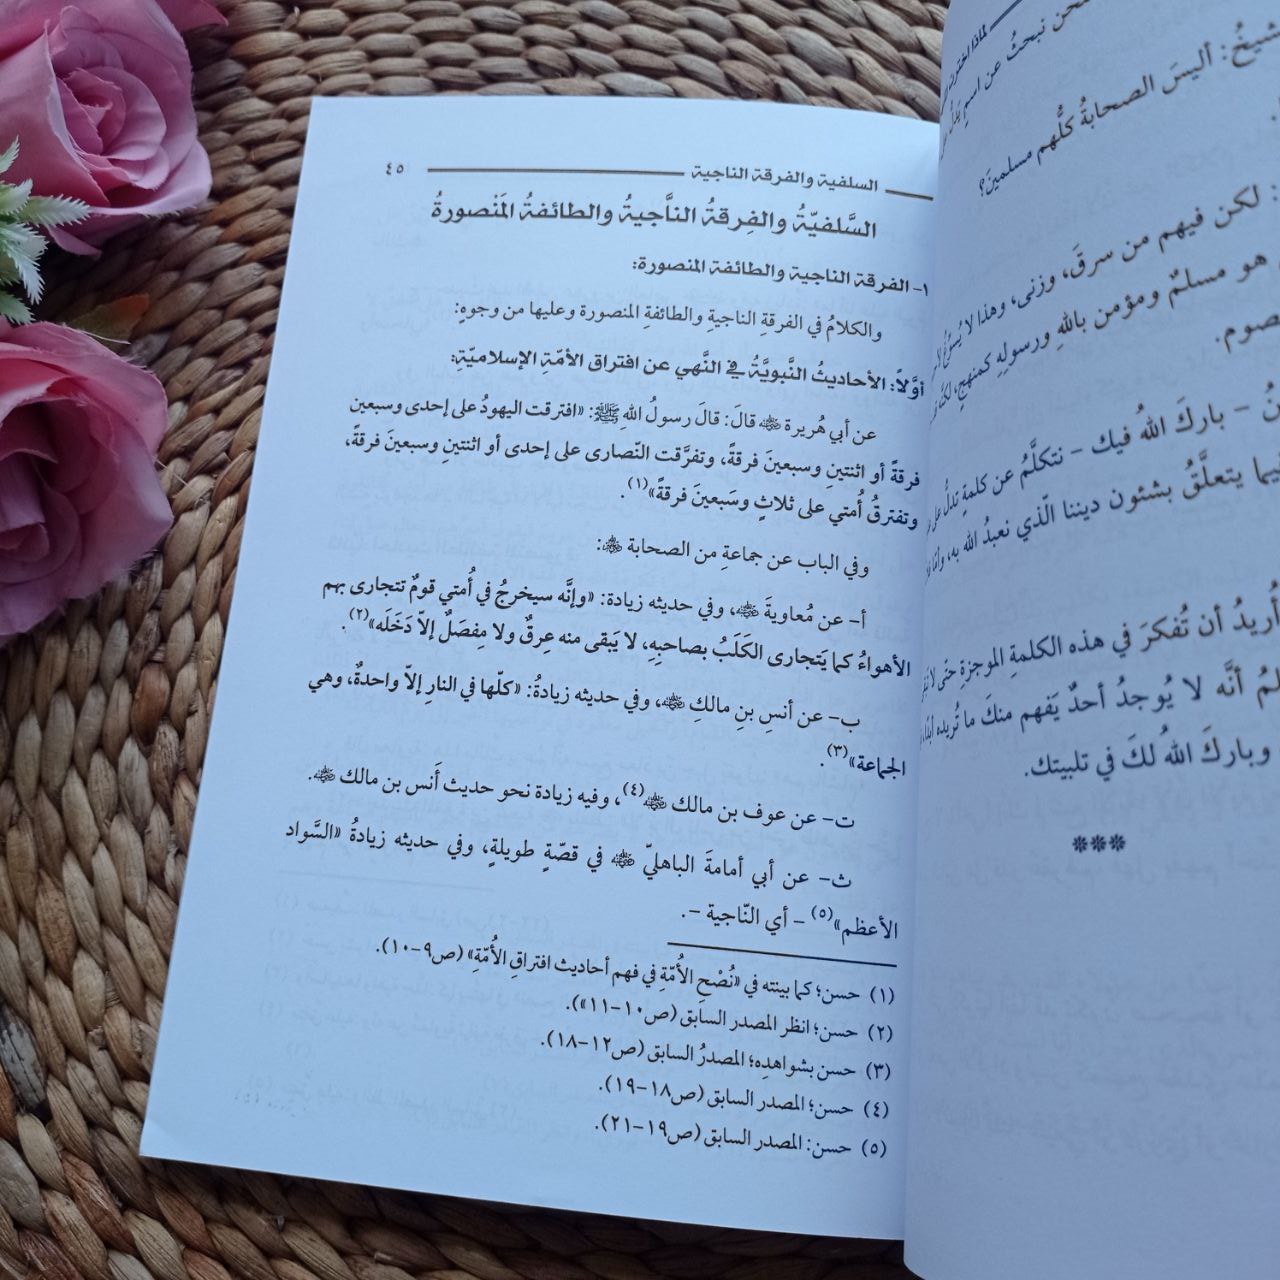 لماذا اخترت
نحن نبحثُ عن اسمٍ يَدلُّ
شيخُ: أليسَ الصحابةُ كلُّهم مسلمينَ؟
: لكن فيهم من سرقَ، وزنى، وهذا لا يُسوِّغُ
هو مسلمٌ ومؤمن باللهِ ورسولِهِ كمنهجٍ، لكنّه
صوم.
– باركَ اللهُ فيك – نتكلَّمُ عن كلمةٍ تدلُّ على
فيما يتعلَّقُ بشئون ديننا الّذي نعبدُ الله به، وأمّا
أُريدُ أن تُفكرَ في هذه الكلمةِ الموجزةِ حتّى لا
أنَّه لا يُوجدُ أحدٌ يَفهم منكَ ما تُريده أبدًا،
وباركَ اللهُ لكَ في تلبيتك.
***
السلفية والفرقة الناجية ٤٥
السَّلفيّةُ والفِرقةُ النَّاجيةُ والطائفةُ المَنْصورةُ
١- الفرقة الناجية والطائفة المنصورة:
والكلامُ في الفرقةِ الناجيةِ والطائفةِ المنصورة وعليها من وجوهٍ:
أوّلاً: الأحاديثُ النَّبويَّةُ في النَّهي عن افتراق الأمّة الإسلاميّةِ:
عن أبي هُريرة ﵁ قالَ: قالَ رسولُ اللهِ ﷺ: «افترقت اليهودُ على إحدى وسبعين
فرقةً أو اثنتينِ وسبعينَ فرقةً، وتفرَّقت النّصارى على إحدى أو اثنتينِ وسبعينَ فرقةً،
وتفترقُ أُمتي على ثلاثٍ وسَبعينَ فرقةً»(١).
وفي الباب عن جماعةٍ من الصحابة ﵃:
أ- عن مُعاويةَ ﵁، وفي حديثه زيادة: «وإنَّه سيخرجُ في أُمتي قومٌ تتجارى بهم
الأهواءُ كما يَتجارى الكَلَبُ بصاحبِهِ، لا يَبقى منه عِرقٌ ولا مِفصَلٌ إلاّ دَخَلَه»(٢).
ب- عن أنسِ بنِ مالكِ ﵁، وفي حديثه زيادةُ: «كلّها في النارِ إلاّ واحدةٌ، وهي
الجماعة»(٣).
ت- عن عوف بن مالك ﵁(٤)، وفيه زيادة نحو حديث أَنس بن مالك ﵁.
ث- عن أبي أمامةَ الباهليّ ﵁ في قصّةٍ طويلةٍ، وفي حديثه زيادةُ «السَّواد
الأعظم»(٥) – أي النّاجية –.
(١) حسن؛ كما بينته في «نُصْحِ الأُمّةِ في فهم أحاديث افتراقِ الأُمّةِ» (ص٩-١٠).
(٢) حسن؛ انظر المصدر السابق (ص١٠-١١»).
(٣) حسن بشواهدِه؛ المصدرُ السابق (ص١٢-١٨).
(٤) حسن؛ المصدر السابق (ص١٨-١٩).
(٥) حسن: المصدر السابق (ص١٩-٢١).